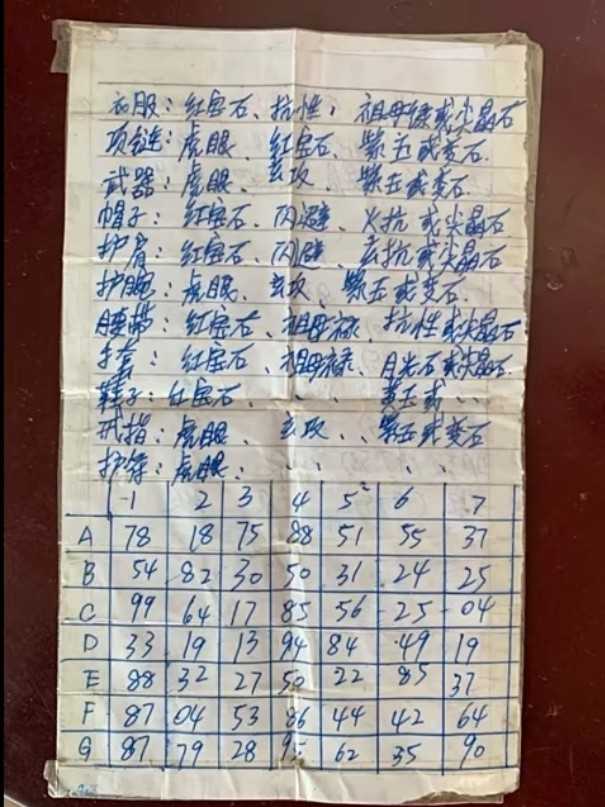 衣服：红宝石、抗性，祖母绿或尖晶石
项链：虎眼、红宝石、紫玉或变石.
武器：虎眼、玄攻、紫玉或变石.
帽子：红宝石、闪避、火抗或尖晶石
护肩：红宝石、闪避、玄抗或尖晶石
护腕：虎眼、玄攻、紫玉或变石.
腰带：红宝石、祖母禄、抗性或尖晶石
手套：红宝石、祖母禄、月光石或尖晶石.
鞋子：红宝石、、、黄玉或、、
戒指：虎眼、玄攻、、紫玉或变石
护符：虎眼、、、、、
1 2 3 4 5 6 7
A 78 18 75 88 51 55 37
B 54 82 30 50 31 24 25
C 99 64 17 85 56 25 04
D 33 19 13 94 84 49 19
E 88 32 27 50 22 85 37
F 87 04 53 86 44 42 64
G 87 79 28 95 62 35 90